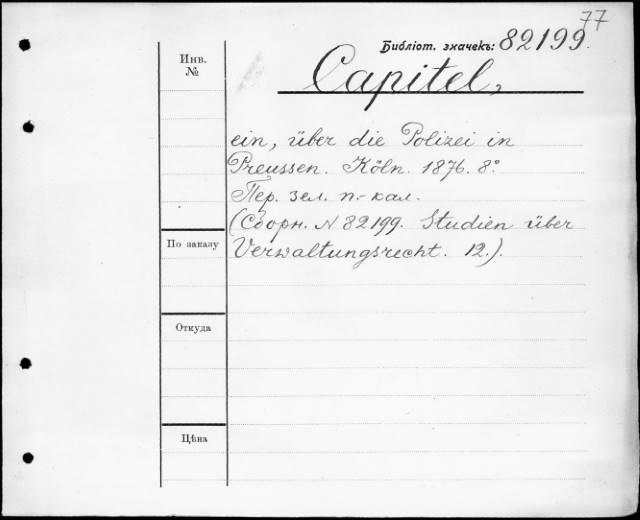 77
Библіот. значекъ: 82199.
Инв. №
Capitel,
ein, über die Polizei in
Preussen. Köln. 1876. 8°
Пер. зел. п.-кал.
(Сборн. № 82199. Studien über
Verwaltungsrecht. 12.).
По заказу
Откуда
Цѣна